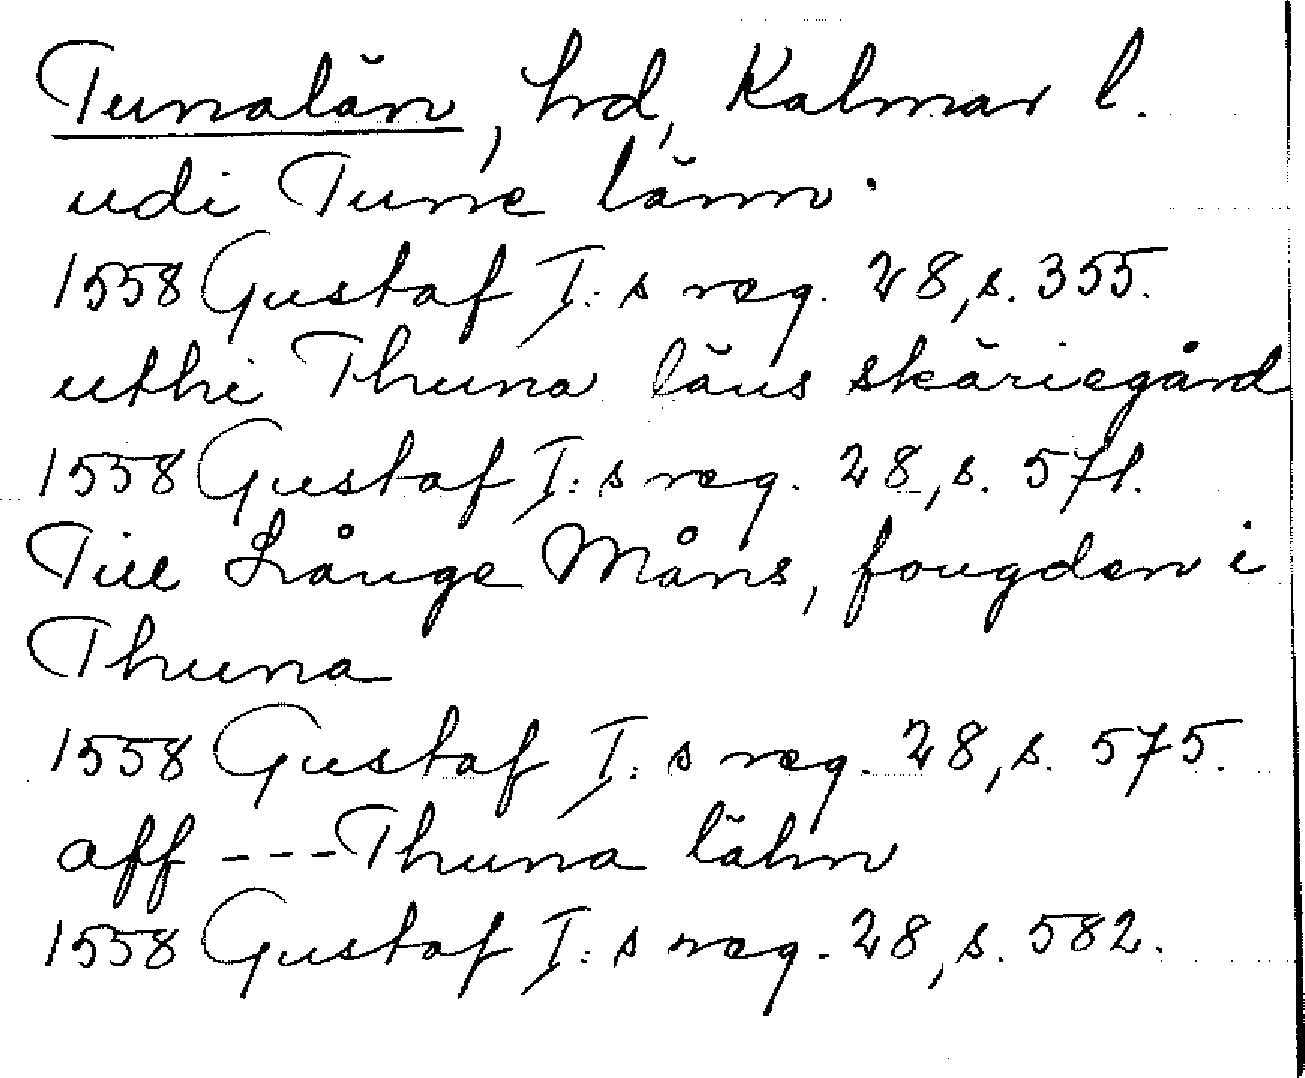 Tunalän, hd, Kalmar l.
udi Tune länn.
1558 Gustaf I:s reg. 28, s. 355.
uthi Thuna läns skäriegård
1558 Gustaf I:s reg. 28, s. 571.
Till Långe Måns, fougden i
Thuna
1558 Gustaf I:s reg. 28, s. 575.
aff --- Thuna lähn
1558 Gustaf I:s reg. 28, s. 582.